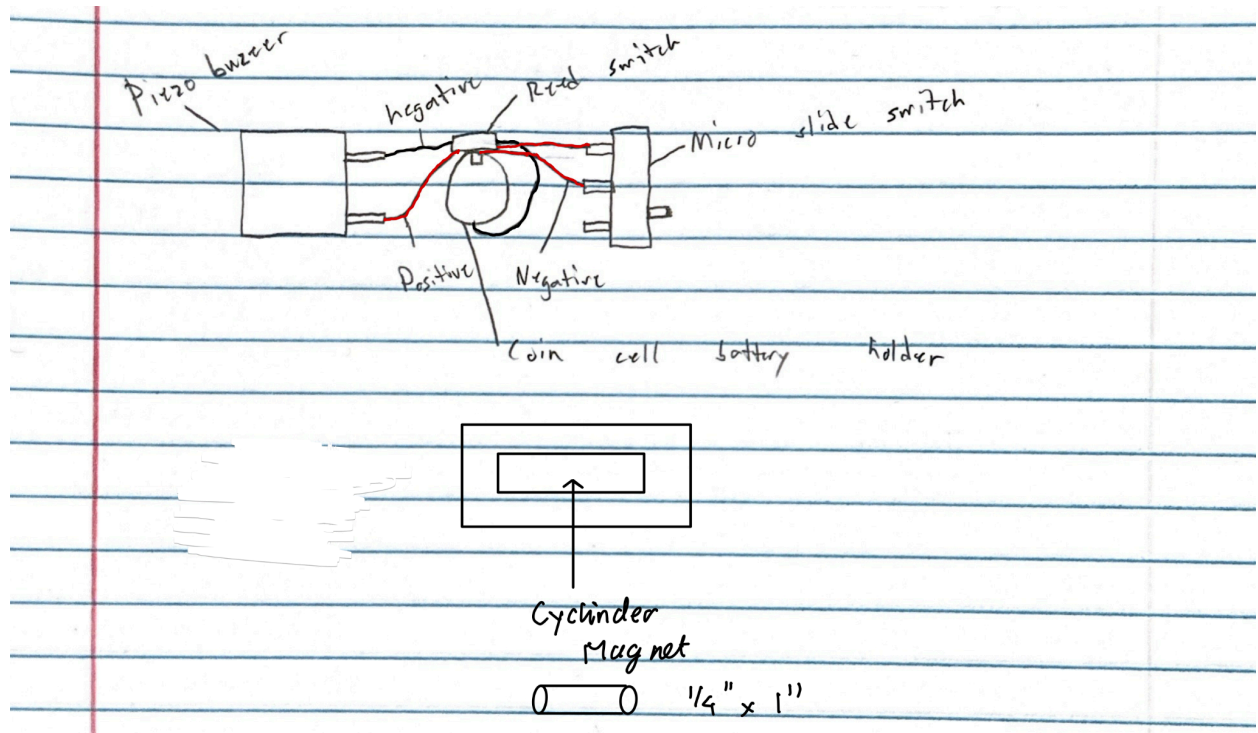 Piezo buzzer
negative
Reed switch
Micro slide switch
Positive
Negative
Coin cell battery holder
Cyclinder
Magnet
1/4" x 1"